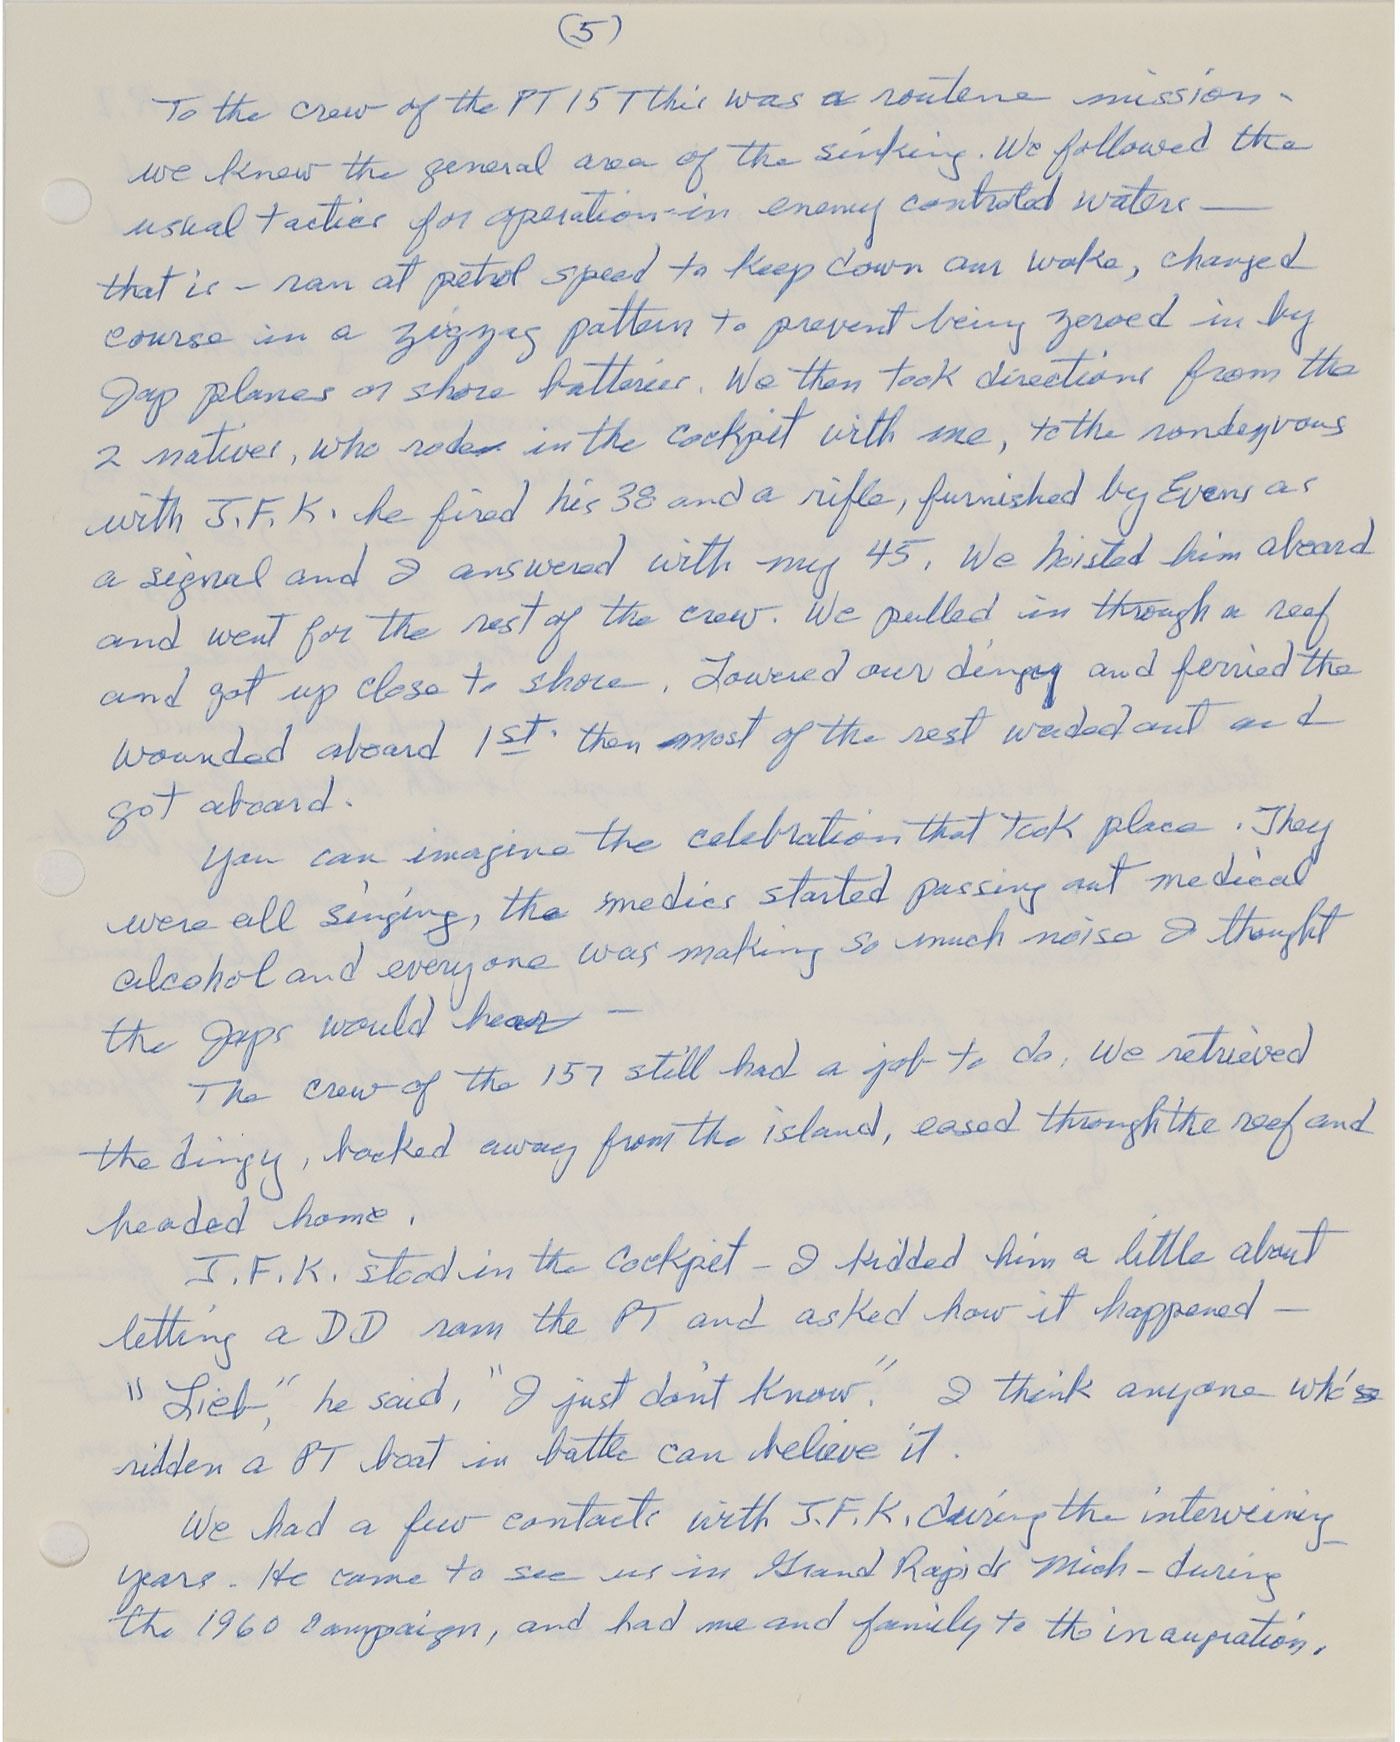 (5)
To the crew of the PT 157 this was a routene mission -
we knew the general area of the sinking. We followed the
usual tactics for operation in enemy controled waters —
that is - ran at petrol speed to keep down our wake, changed
course in a zigzag pattern to prevent being zeroed in by
Jap planes or shore batteries. We then took directions from the
2 natives, who rode in the cockpit with me, to the rondezvous
with J.F.K. he fired his 38 and a rifle, furnished by Evens as
a signal and I answered with my 45. We hoisted him aboard
and went for the rest of the crew. We pulled in through a reef
and got up close to shore. Lowered our dingy and ferried the
wounded aboard 1st. then most of the rest waded out and
got aboard.
You can imagine the celebration that took place. They
were all singing, the medics started passing out medical
alcohol and everyone was making so much noise I thought
the Japs would hear —
The crew of the 157 still had a job to do. We retrieved
the dingy, backed away from the island, eased through the reef and
headed home.
J.F.K. stood in the cockpit - I kidded him a little about
letting a DD ram the PT and asked how it happened —
"Lieb," he said, "I just don't know." I think anyone who's
ridden a PT boat in battle can believe it.
We had a few contacts with J.F.K. during the interveining
years. He came to see us in Grand Rapids Mich - during
the 1960 campaign, and had me and family to the inaugration.